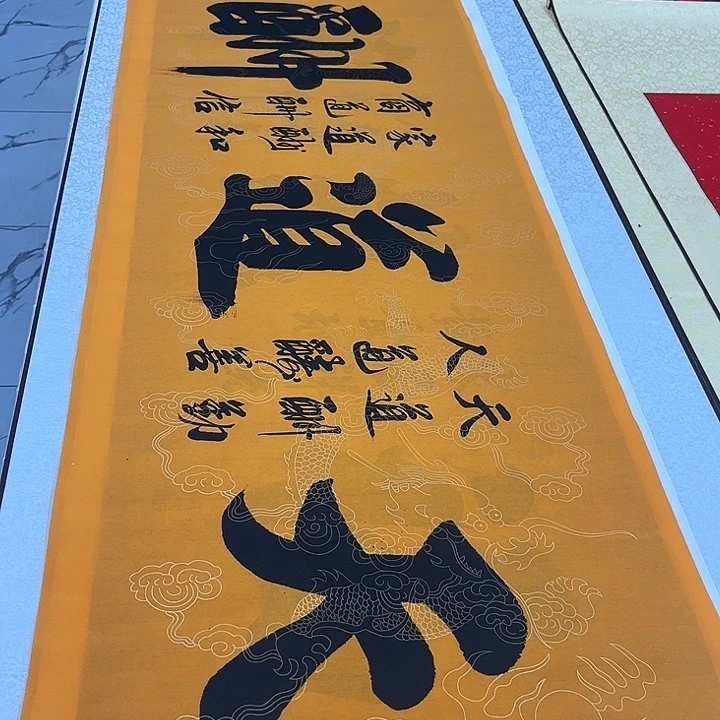 天道酬
天道酬勤
人道酬善
家道酬和
商道酬信